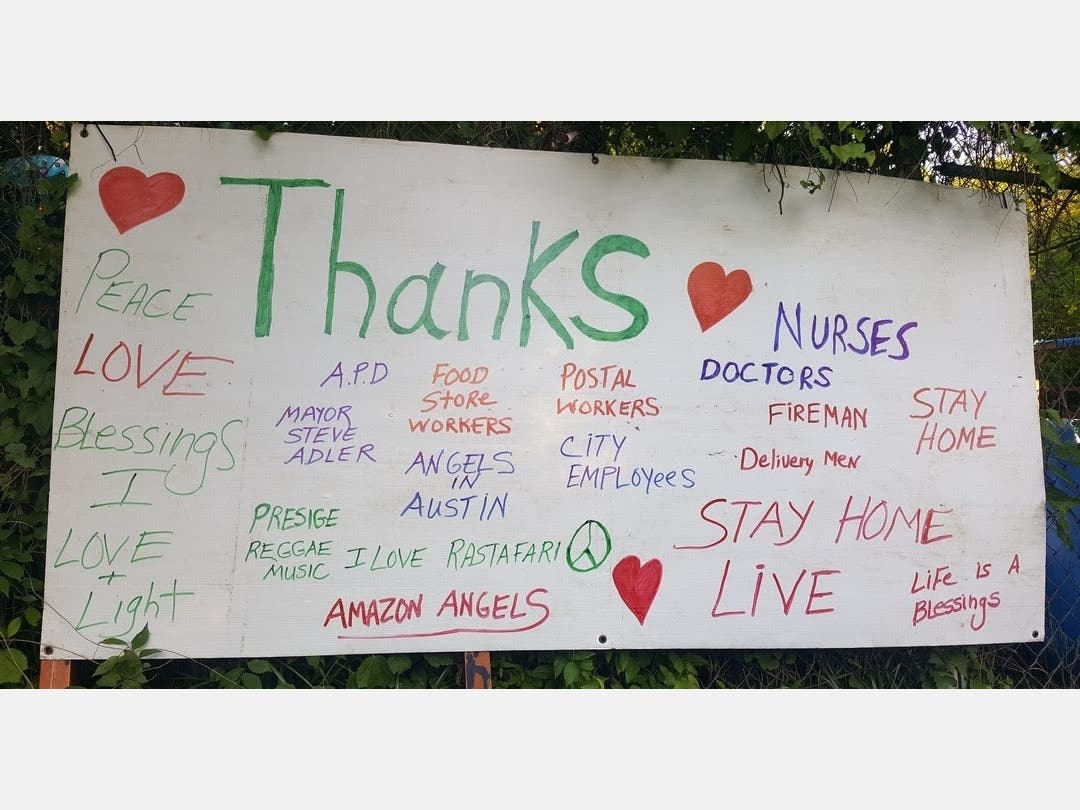 Thanks
PEACE
LOVE
Blessings
I
LOVE
+
Light
A.P.D
MAYOR
STEVE
ADLER
FOOD
Store
WORKERS
ANGELS
IN
AUSTIN
POSTAL
WORKERS
CITY
EMPLOYeeS
NURSES
DOCTORS
FiREMAN
Delivery MeN
STAY
HOME
PRESIGE
REGGAE
MUSIC
I LOVE RASTAFARI
AMAZON ANGELS
STAY HOME
LiVE
LiFe IS A
Blessings